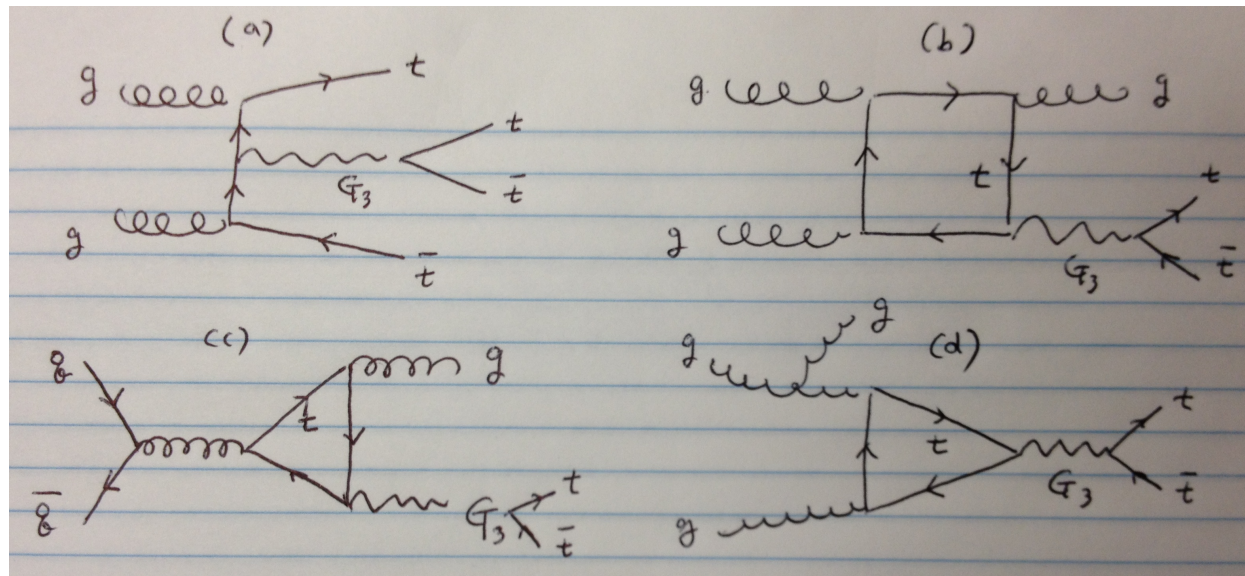 (a)
g
t
t
G₃
t̄
g
t̄
(b)
g
g
t
t
g
G₃
t̄
(c)
q
g
t
q̄
G₃
t
t̄
(d)
g
g
t
t
G₃
t̄
g